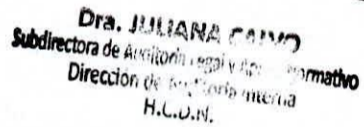 Dra. JULIANA CALVO
Subdirectora de Auditoría Legal y Normativo
Dirección de Auditoría Interna
H.C.D.N.